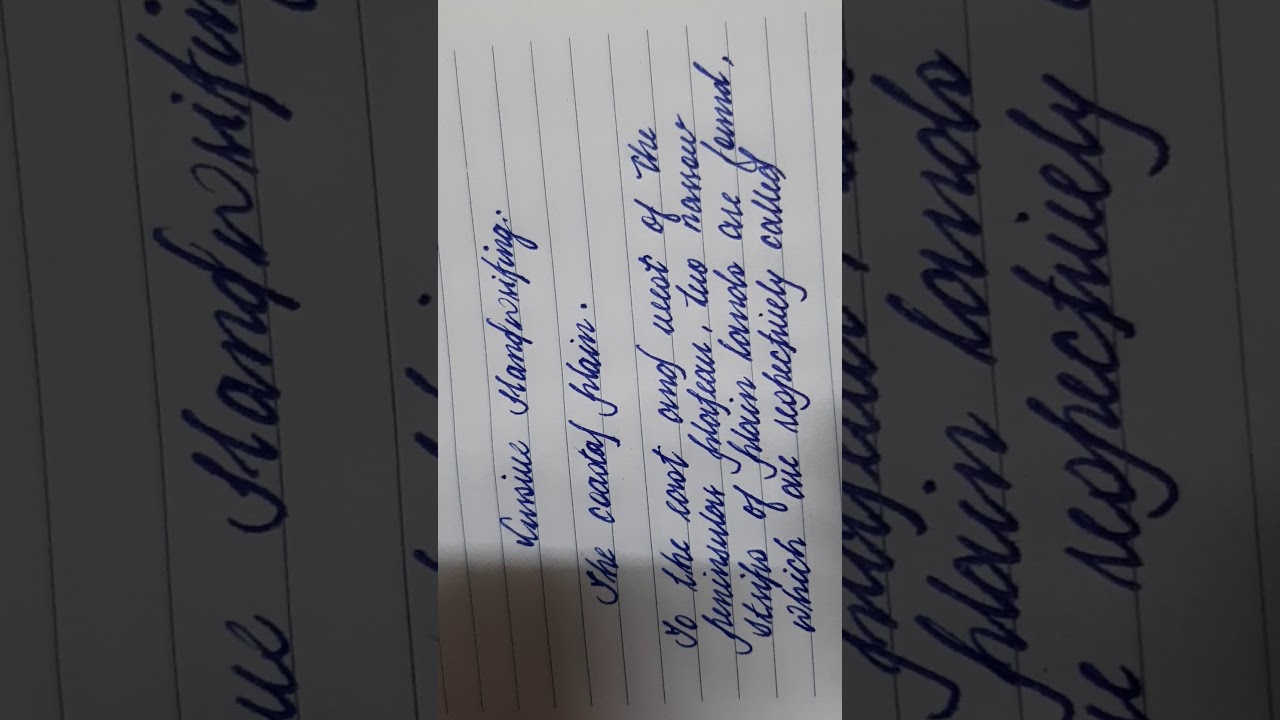 Cursive Handwriting.
The coastal plain.
To the east and west of the
peninsular plateau, two narrow
strips of plain lands are found,
which are respectively called